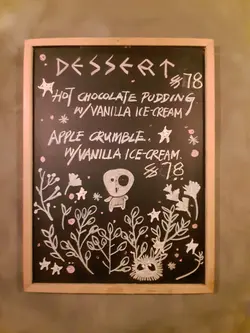 DESSERT
HOT CHOCOLATE PUDDING
W/VANILLA ICE-CREAM
78
APPLE CRUMBLE
W/VANILLA ICE-CREAM.
78